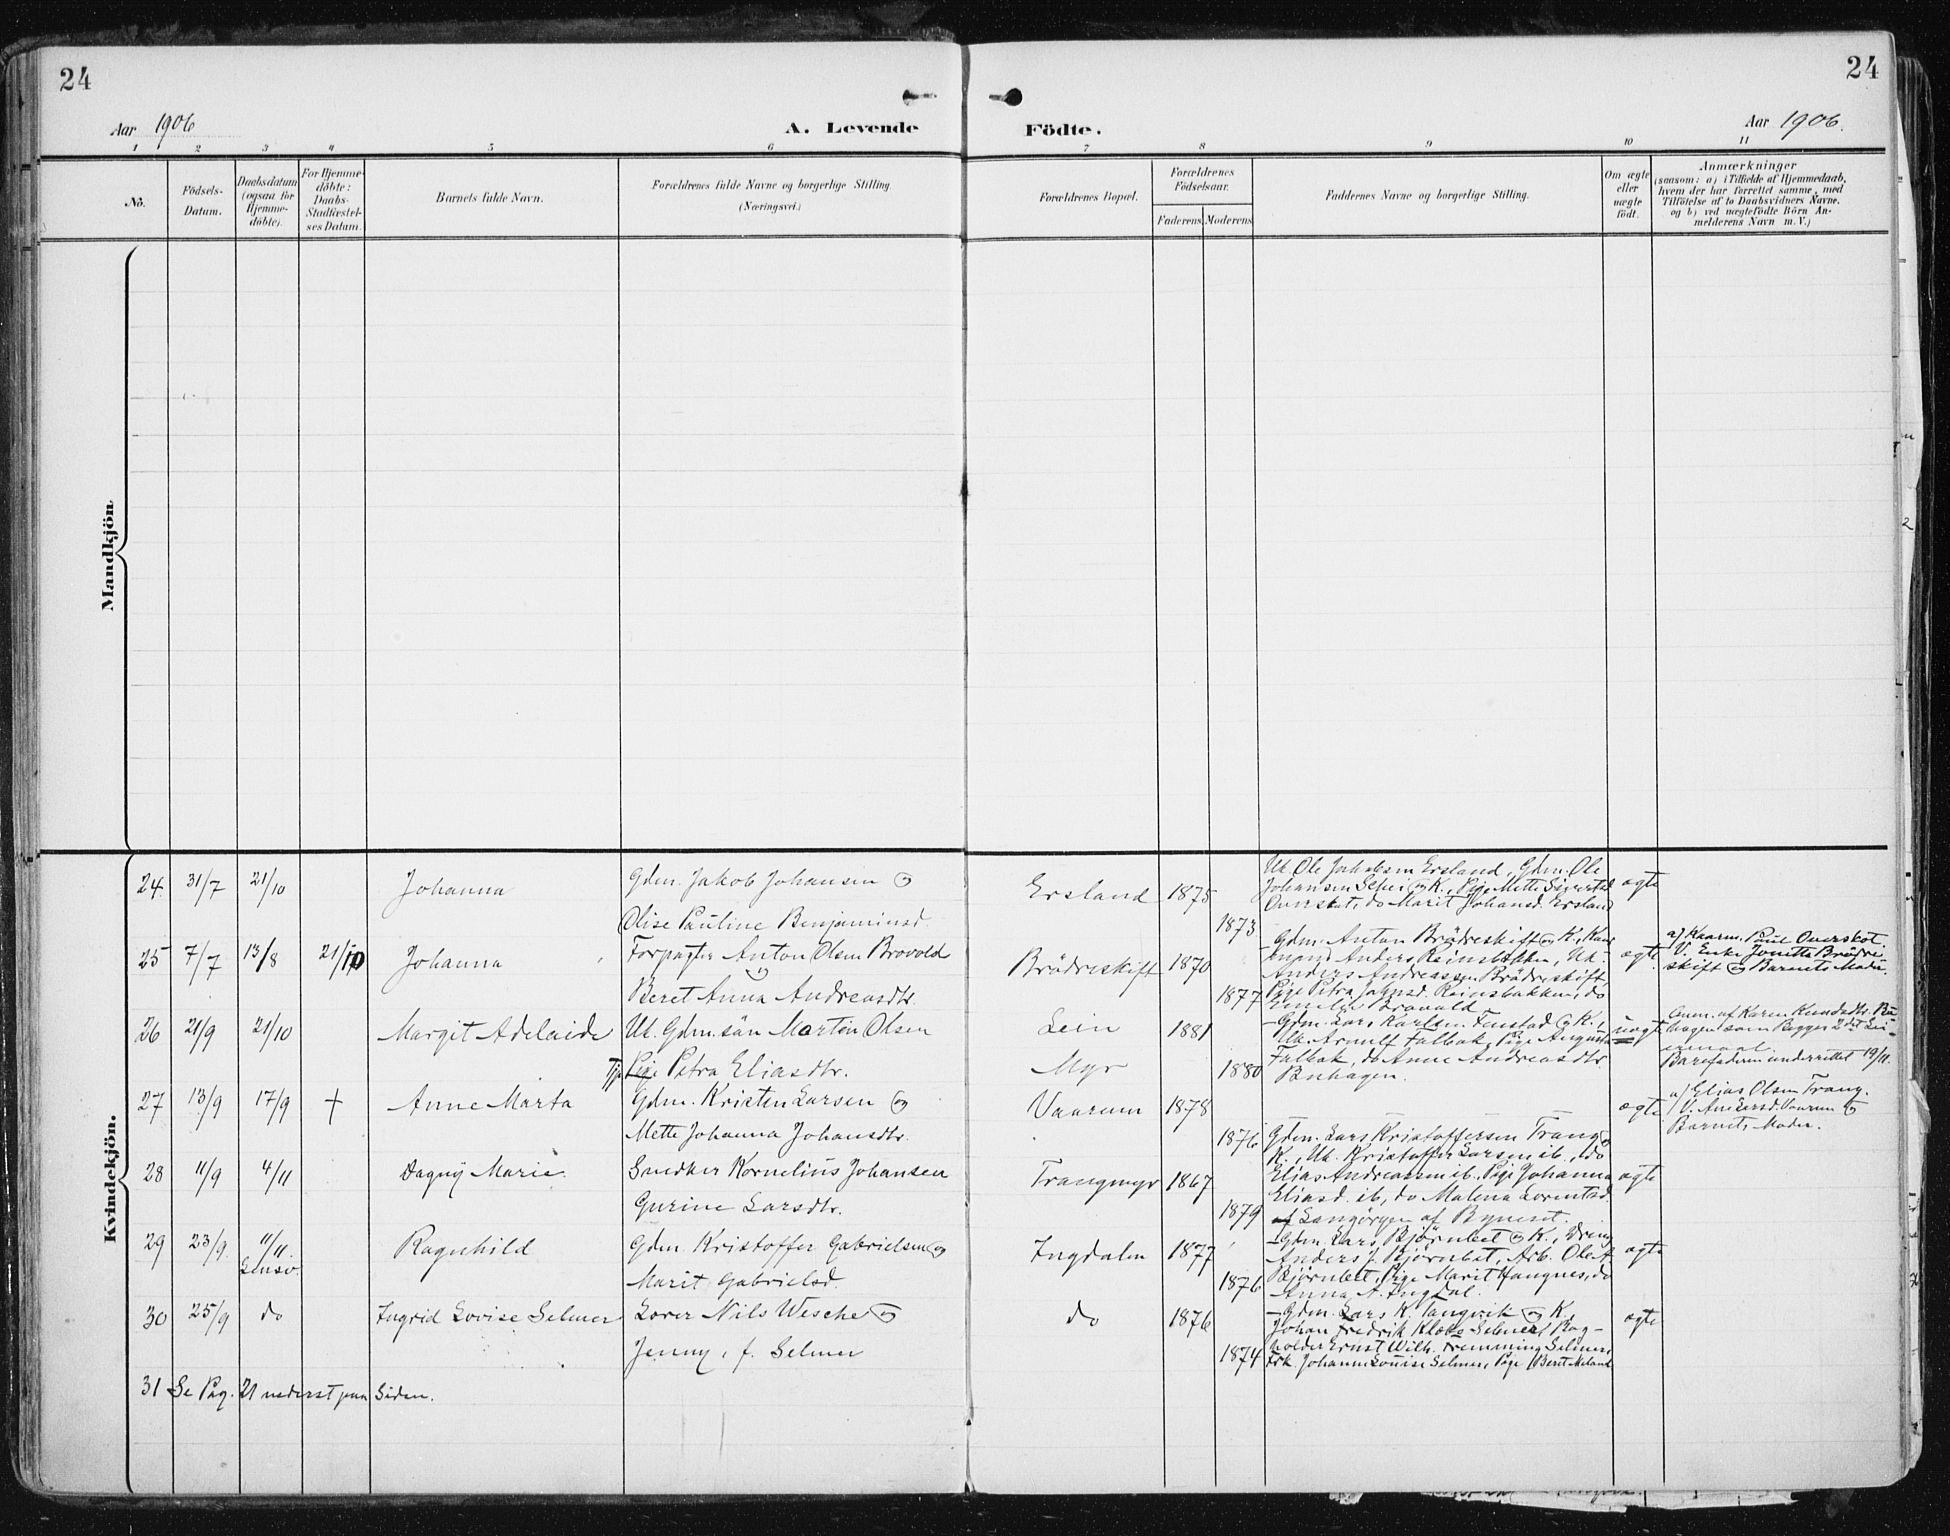 24
24
Aar 1906
A. Levende
Födte.
Aar 1906.
1 2 3 4 5 6 7 8 9 10 11
No.
Födsels-
Datum.
Daabsdatum
(ogsaa for
Hjemme-
döbte).
For Hjemme-
döbte:
Daabs-
Stadfæstel-
ses Datum.
Barnets fulde Navn.
Forældrenes fulde Navne og borgerlige Stilling.
(Næringsvei.)
Forældrenes Bopæl.
Forældrenes
Födselsaar.
Faderens. Moderens.
Faddernes Navne og borgerlige Stilling.
Om ægte
eller
uægte
födt.
Anmærkninger
(saasom: a) i Tilfælde af Hjemmedaab,
hvem der har forrettet samme, med
Tilföielse af to Daabsvidners Navne,
og b) ved uægtefödte Börn An-
melderens Navn m. V.)
Mandkjön.
Kvindekjön.
24. 31/7 21/10 Johanna
Gdm. Jakob Johansen og
Olise Pauline Benjaminsd.
Ersland 1875
1873
Uk. Ole Jakobsen Ersland, Gdm. Ole
Johansen Selsei og K., Pige Mette Sivertsd.
Overskot, do Marit Johansd. Ersland
ægte
25 7/7 13/8 21/10 Johanna
Forpagter Anton Olsen Brovold
Beret Anna Andreasdtr.
Brödreskift 1870
1877
Gdm. Anton Brödreskift og K.,
Anders Reinsbakken, Uk.
Anders Andreassen Brödreskift,
Pige Petra Johnsd. Reinsbakken, do
Emelie Brovold
ægte
a) Kaarm. Paul Overskot.
V. Enke Jonetta Brödre-
skift og Barnets Moder.
26 21/9 21/10 Margit Adelaide
Uk. Gdm.sön Martin Olsen
Tje Pige Petra Eliasdtr.
Lein 1881
Myr 1880
Gdm. Lars Karlsen Fenstad og K.,
Uk. Arnulf Falbak, Pige Augusta
Falbak, do Anne Andreasdtr.
uægte
Anm. af Karen Knudsdtr.
hagen som
Barnefaderen underrettet 19/11.
27 13/9 17/9 + Anne Marta
Gdm. Kristen Larsen og
Mette Johanna Johansdtr.
Vaarum 1878
1876
ægte
a) Elias Olsen Trang.
V. Ane Larsd. Vaarum og
Barnets Moder.
28 11/9 4/11 Dagny Marie
Snedker Kornelius Johansen
Gurine Larsdtr.
Trangmyr 1867
1879
Gdm. Lars Kristoffersen Trang og
K., Uk. Kristoffer Larsen ib., do
Elias Andreassen ib., Pige Johanna
Eliasd. ib., do Malena Lorentsd.
af Langörgen af Byneset.
ægte
29 23/9 11/11 Ragnhild
Lensv.
Gdm. Kristoffer Gabrielsen og
Marit Gabrielsd.
Ingdalen 1877
1876
Gdm. Lars Bjørnbet og K., Dreng
Anders J. Bjørnbet, Arb. Ole A.
Bjørnbet, Pige Marit Haugnes, do
Anna A. Ingdal.
ægte
30 25/9 do Ingrid Lovise Selmer
Lærer Nils Wesche og
Jenny, f. Selmer
do 1876
1874
Gdm. Lars K. Tangvik og K.,
Johan Fredrik Klæbo Selmer, Bog-
holder Ernst Wilh. Fremming Selmer,
Frk. Johanne Louise Selmer, Pige Beret Meland
ægte
31 Se Pag. 21 nederst paa Siden.